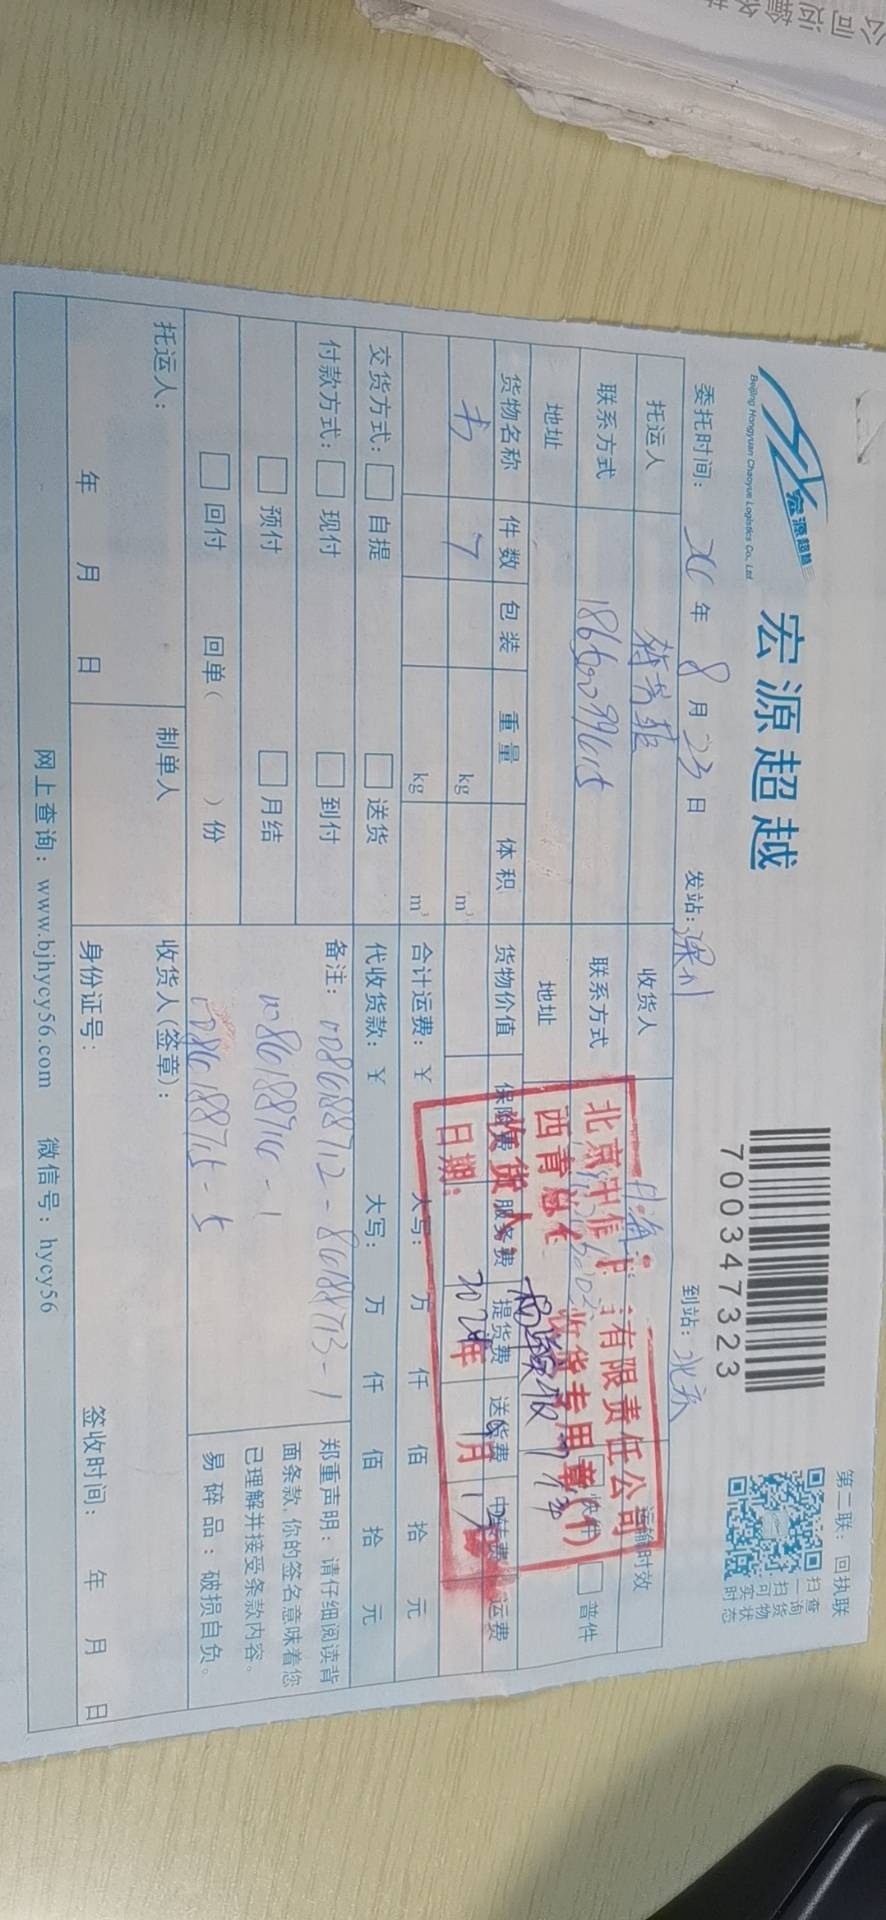 公司运输
宏源超越
Beijing Hongyuan Chaoyue Logistics Co., Ltd
宏源超越
700347323
第二联：回执联
扫一扫
查询货物
可实时状态
委托时间： 年 8 月 23 日 发站：深圳 到站：北京
托运人 收货人 运输时效
联系方式 联系方式 快件 普件
地址 地址
货物名称 件数 包装 重量 体积 货物价值 保险费 服务费 提货费 送货费 中转费 运费
书 7 kg m³
kg m³
合计运费：¥ 大写： 万 仟 佰 拾 元
交货方式： 自提 送货
代收货款：¥ 大写： 万 仟 佰 拾 元
付款方式： 现付 到付
预付 月结
回付 回单（ ）份
备注：
郑重声明：请仔细阅读背
面条款，你的签名意味着您
已理解并接受条款内容。
易碎品：破损自负。
托运人：
年 月 日
制单人
收货人（签章）：
身份证号：
签收时间： 年 月 日
网上查询：www.bjhycy56.com 微信号：hycy56
北京 有限责任公司
西青 收货专用章(1)
收货人：
日期： 年 月